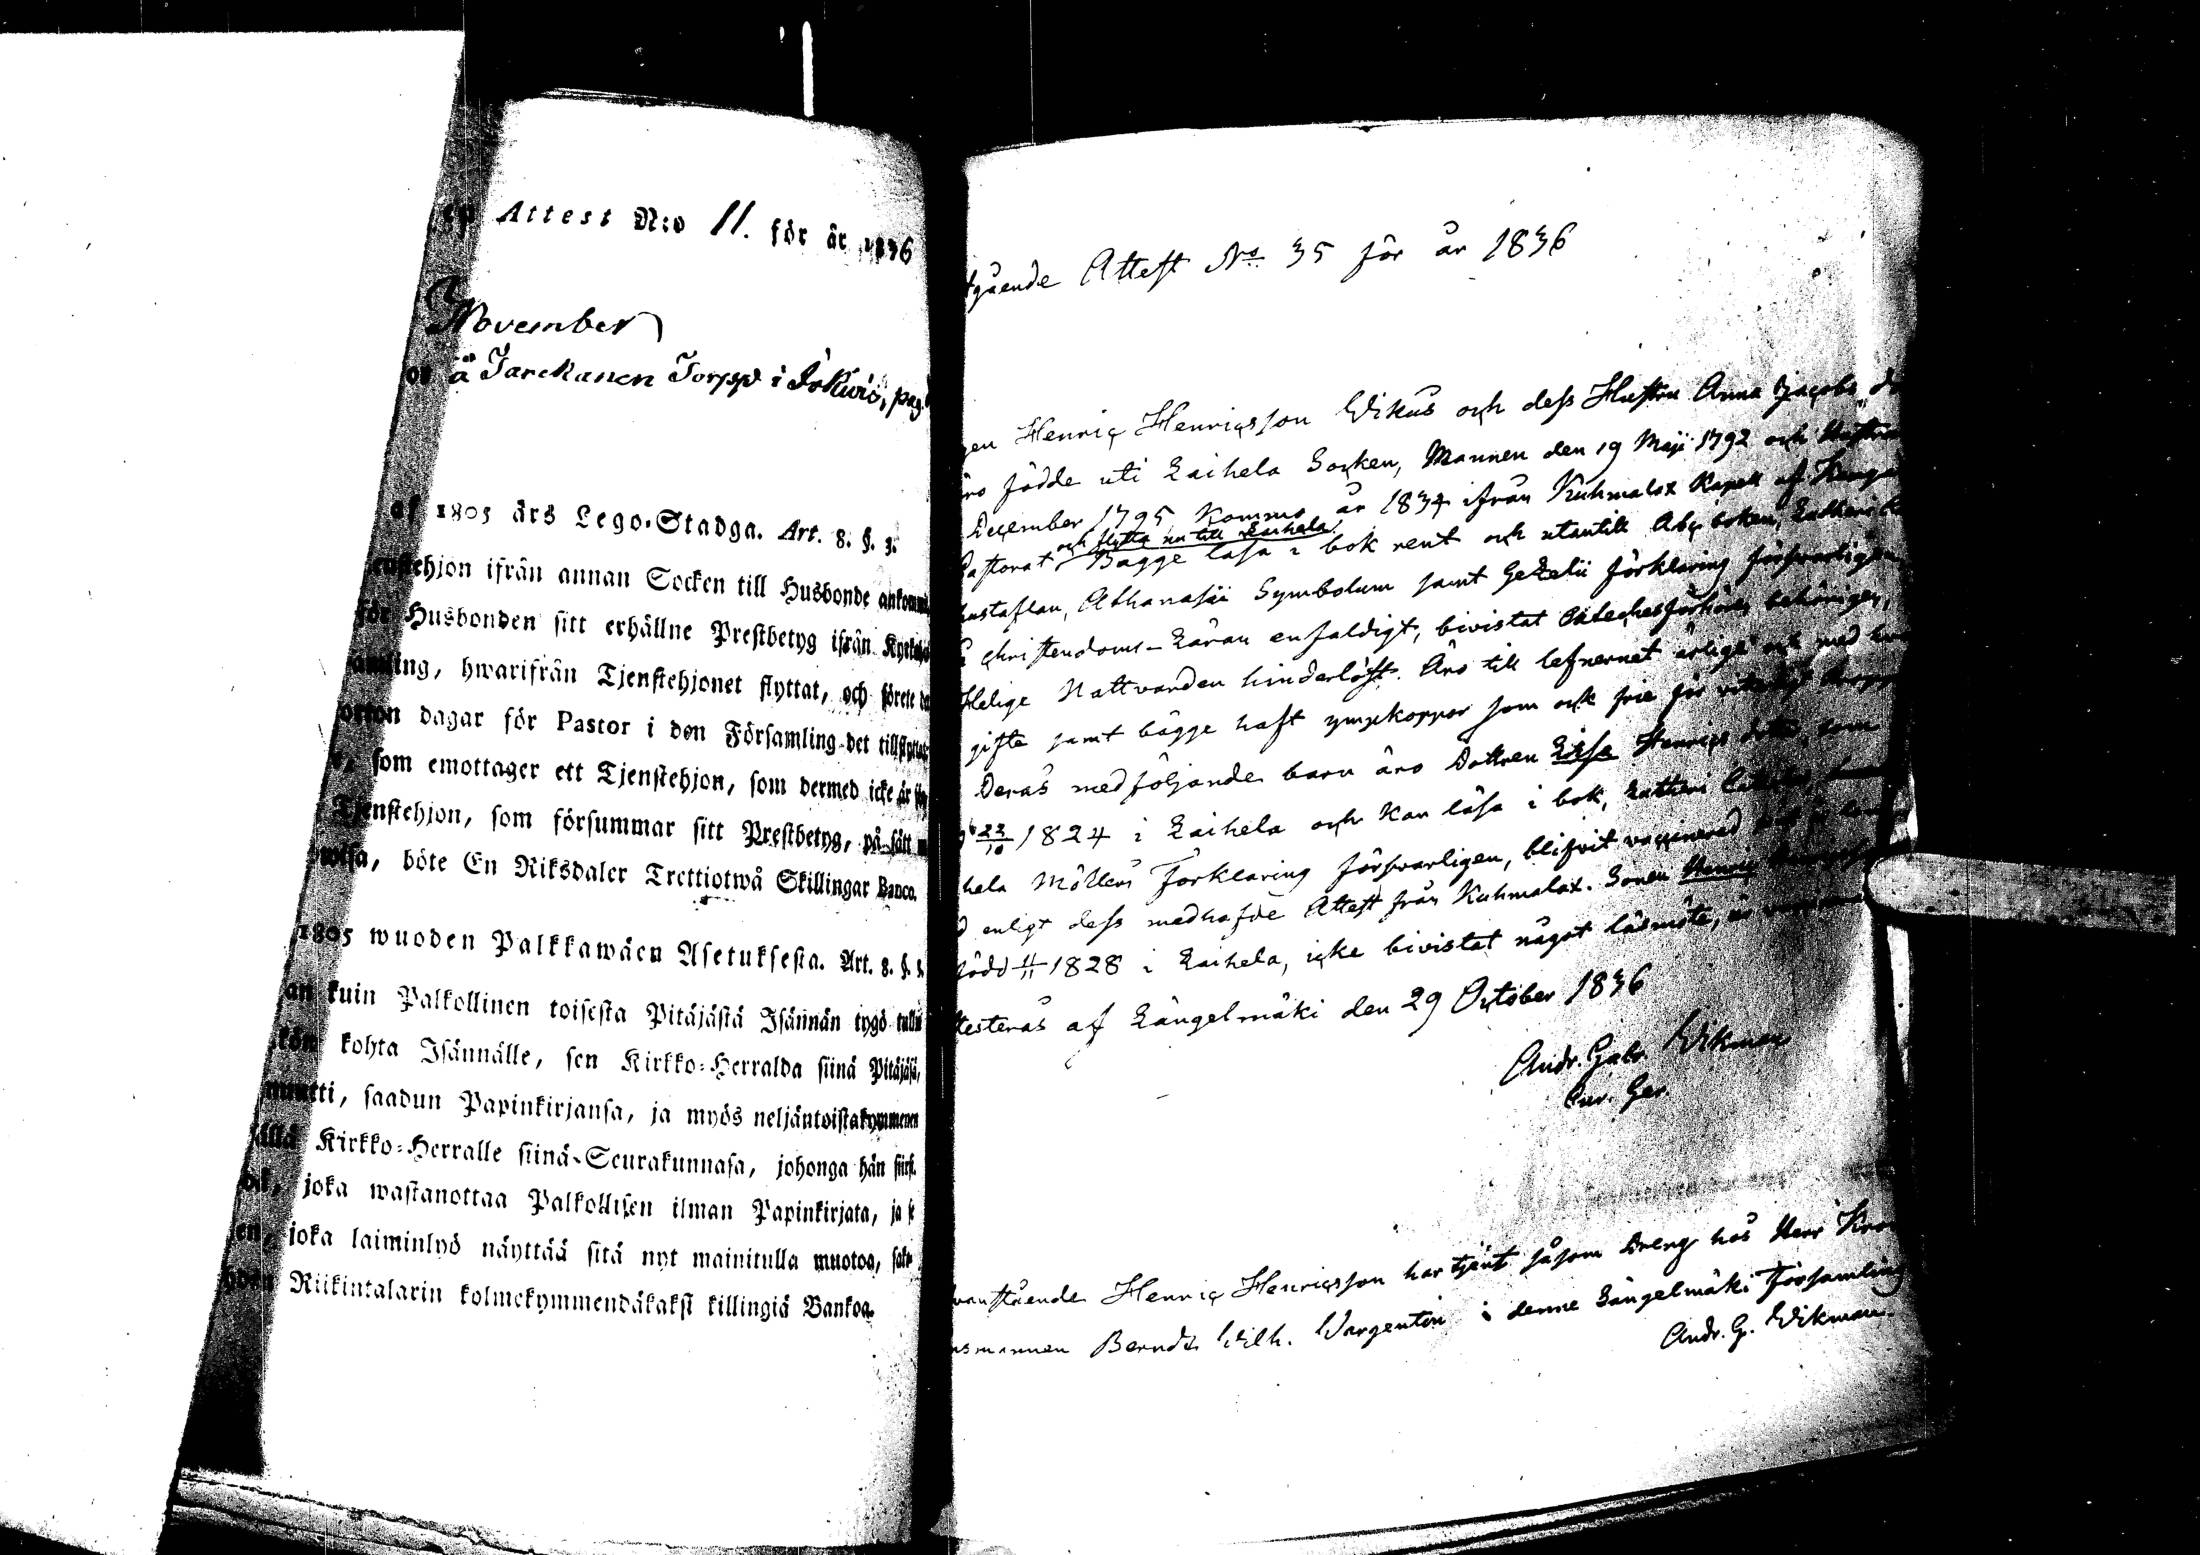 Attest N:o 11. för år 1836
November
å Jarckanen Torpp i Jokivio, pag.
af 1805 års Lego-Stadga. Art. 8. §. 3.
enstehjon ifrån annan Socken till Husbonde ankommi
för Husbonden sitt erhållne Prestbetyg ifrån Kyrko
amling, hwarifrån Tjenstehjonet flyttat, och förete
orton dagar för Pastor i den Församling det tillflyttat
som emottager ett Tjenstehjon, som dermed icke är
Tjenstehjon, som försummar sitt Prestbetyg, på sätt
wisa, böte En Riksdaler Trettiotwå Skillingar Banco.
1805 wuoden Palkkawäen Asetuksesta. Art. 8. §.
an kuin Palkollinen toisesta Pitäjästä Isännän tygö tullu
kohta Isännälle, sen Kirkko-Herralda siinä Pitäjäsä,
muutti, saadun Papinkirjansa, ja myös neljäntoistakymmenen
Kirkko-Herralle siinä Seurakunnasa, johonga hän siirt.
joka wastanottaa Palkollisen ilman Papinkirjata, ja
en, joka laiminlyö näyttää sitä nyt mainitulla muotoa,
Riikintalarin kolmekymmendäkaksi killingiä Bankoa.
tgående Attest No 35 för år 1836
gen Henric Henricsson Wikus och dess Hustru Anna Jacobs
äro födde uti Laihela Socken, Mannen den 19 Maji 1792 och Hustrun
December 1795 Komne år 1834 ifrån Kuhmalax Kapell af Kanga
och flytta nu till Laihela
Pastorat Bägge läsa i bok rent och utantill Abc boken, Lutheri
hustaflan, Athanasii Symbolum samt Gezelii förklaring försvarligen
christendoms-Läran enfaldigt, bivistat Catechesförhören behörigen,
Helige Nattvarden hinderlöst. Äro till lefnernet ärlige och med
gifta samt bägge haft ympkoppor som och frie för
Deras medföljande barn äro Dottren Lisa Henrics dotter, som
22/10 1824 i Laihela och kan läsa i bok, Lutheri
hela Möllers Förklaring försvarligen, blifvit vaccinerad
enligt dess medhafde Attest från Kuhmalax. Sonen Henric
född 11/11 1828 i Laihela, icke bivistat något läsmöte, är
testeras af Längelmäki den 29 October 1836
Andr. Gabr. Wikman
Cur. Ger.
vanstående Henric Henricsson har tjent såsom Dreng hos Herr Kro
nsmannen Berndt Wilh. Wargentin i denne Längelmäki Församling
Andr. G. Wikman.